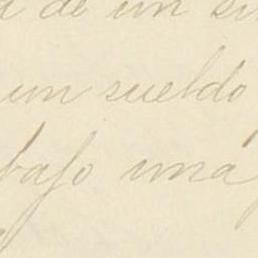 a de un
un sueldo
bajo una